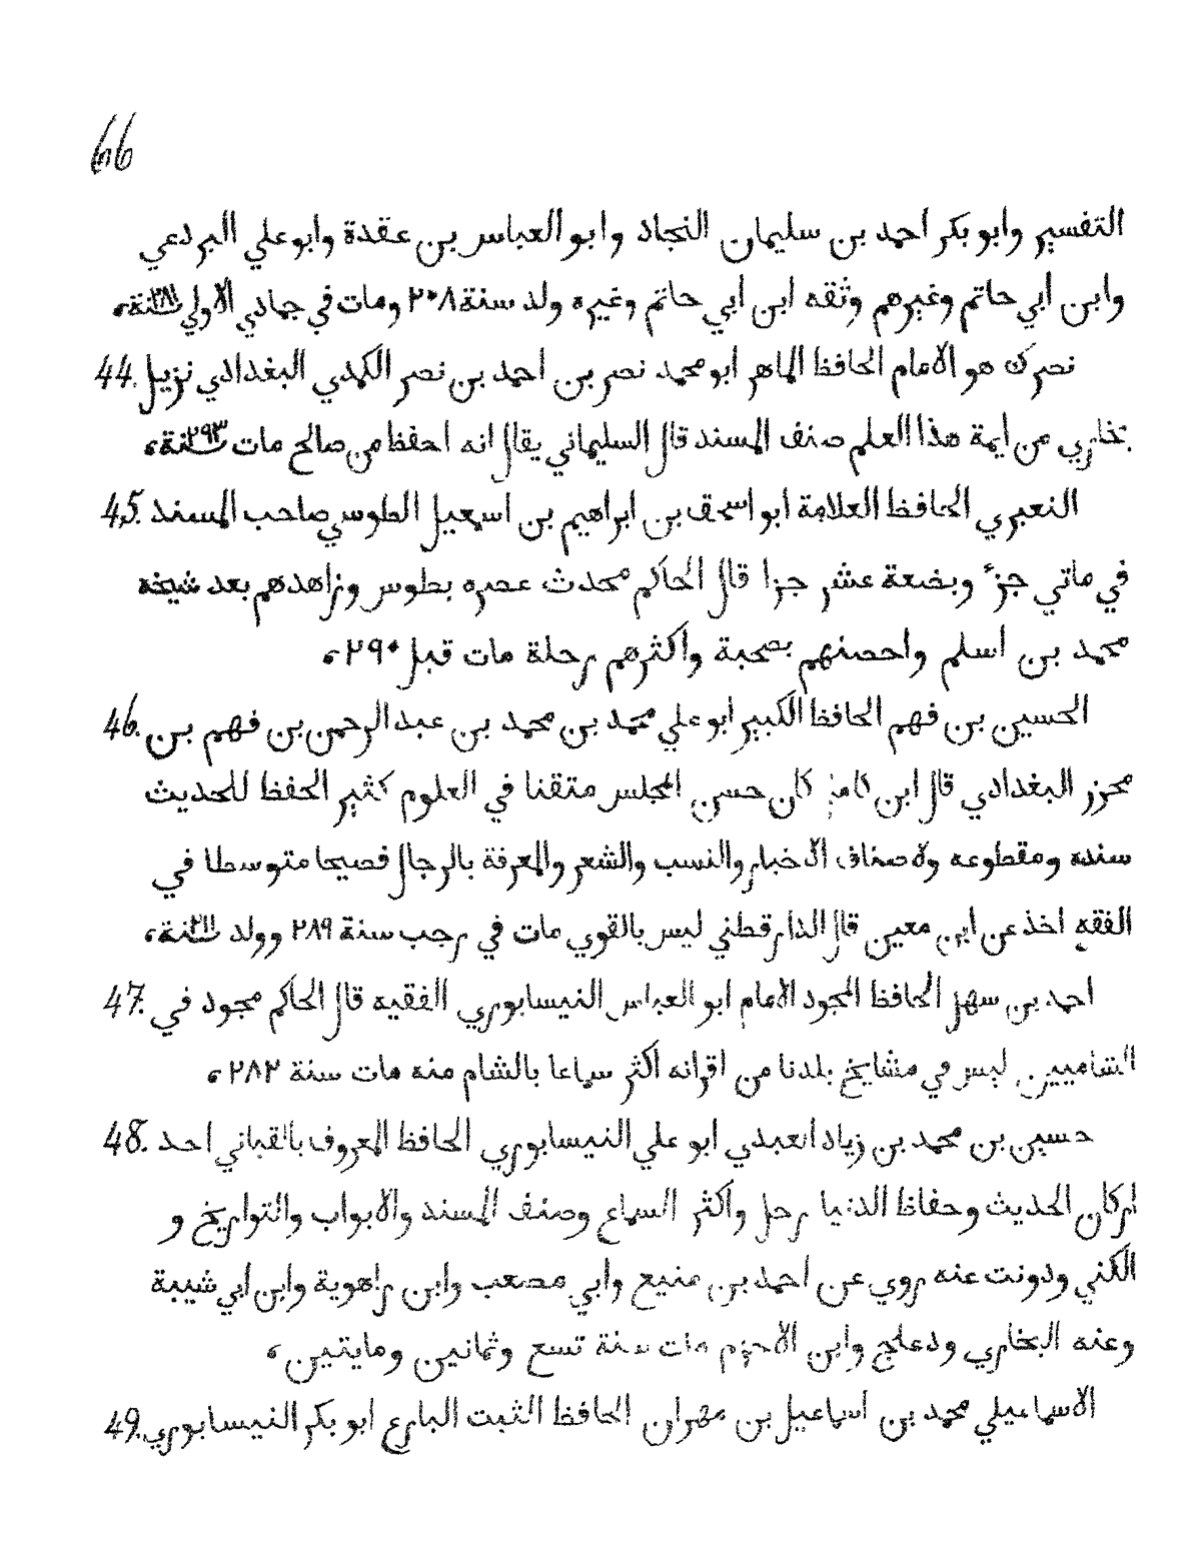 66
التفسير وابو بكر احمد بن سليمان النجاد وابو العباس بن عقدة وابو علي البردعي
وابن ابي حاتم وغيرهم وثقه ابن ابي حاتم وغيره ولد سنة ٢٠٨ ومات في جمادي الاولي سنة ٢٨١،
44. نصرك هو الامام الحافظ الماهر ابو محمد نصر بن احمد بن نصر الكمدي البغدادي نزيل
بخاري من ايمة هذا العلم صنف المسند قال السليماني يقال انه احفظ من صالح مات سنة ٢٩٣،
45. النعبري الحافظ العلامة ابو اسحق بن ابراهيم بن اسمعيل الطوسي صاحب المسند
في ماتي جزء وبضعة عشر جزا قال الحاكم محدث عصره بطوس وزاهدهم بعد شيخه
محمد بن اسلم واحصنهم بصحبة واكثرهم رحلة مات قبل ٢٩٠،
46. الحسين بن فهم الحافظ الكبير ابو علي محمد بن محمد بن عبد الرحمن بن فهم بن
محرز البغدادي قال ابن كامل كان حسن المجلس متقنا في العلوم كثير الحفظ للحديث
سنده ومقطوعه ولاصناف الاخبار والنسب والشعر والمعرفة بالرجال فصيحا متوسطا في
الفقه اخذ عن ابن معين قال الدارقطني ليس بالقوي مات في رجب سنة ٢٨٩ وولد سنة ٢١١،
47. احمد بن سهل الحافظ المجود الامام ابو العباس النيسابوري الفقيه قال الحاكم مجود في
الشاميين ليس في مشايخ بلدنا من اقرانه اكثر سماعا بالشام منه مات سنة ٢٨٢،
48. حسين بن محمد بن زياد العبدي ابو علي النيسابوري الحافظ المعروف بالقباني احد
اركان الحديث وحفاظ الدنيا رحل واكثر السماع وصنف المسند والابواب والتواريخ و
الكني ودونت عنه روي عن احمد بن منيع وابي مصعب وابن راهوية وابن ابي شيبة
وعنه البخاري ودعلج وابن الاحزم مات سنة تسع وثمانين ومايتين،
49. الاسماعيلي محمد بن اسماعيل بن مهران الحافظ الثبت البارع ابو بكر النيسابوري